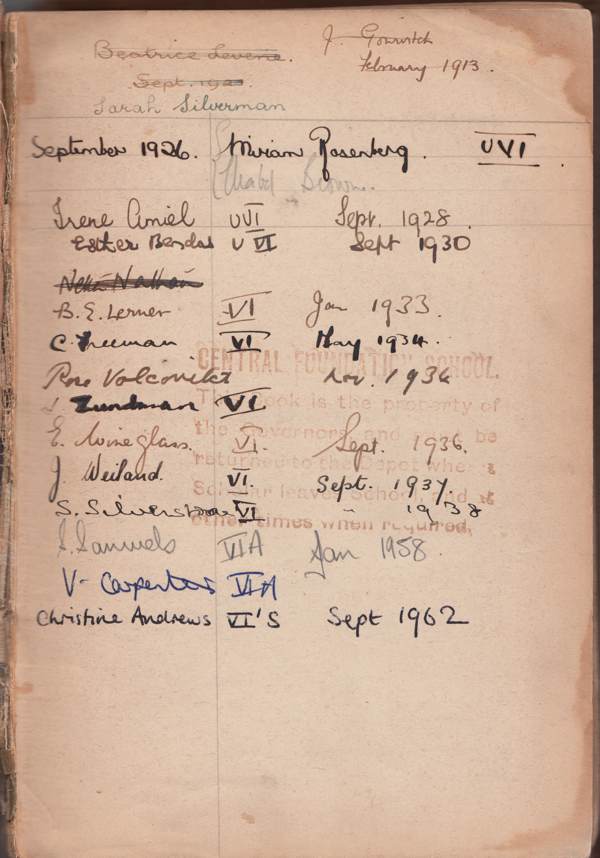 Beatrice Levene.
J. Gourvitch
February 1913.
Sept. 1923
Sarah Silverman
September 1926. Miriam Rosenberg. UVI
Mabel Brown.
Irene Amiel UVI Sept. 1928
Esther Bendas U VI Sept 1930
Nathan
B. E. Lerner VI Jan 1933.
C. Freeman VI May 1934.
CENTRAL FOUNDATION SCHOOL.
Rose Volcovitch Nov. 1934
This Book is the property of
Zundman VI
the Governors, and must be
E. Wineglass. VI. Sept. 1936.
returned to the Depot when a
J. Weiland. VI. Sept. 1937.
Scholar leaves School, and at
S. Silverstone VI " 1938
other times when required.
S. Samuels VIA Jan 1958.
V. Carpenter VIA
Christine Andrews VI'S Sept 1962